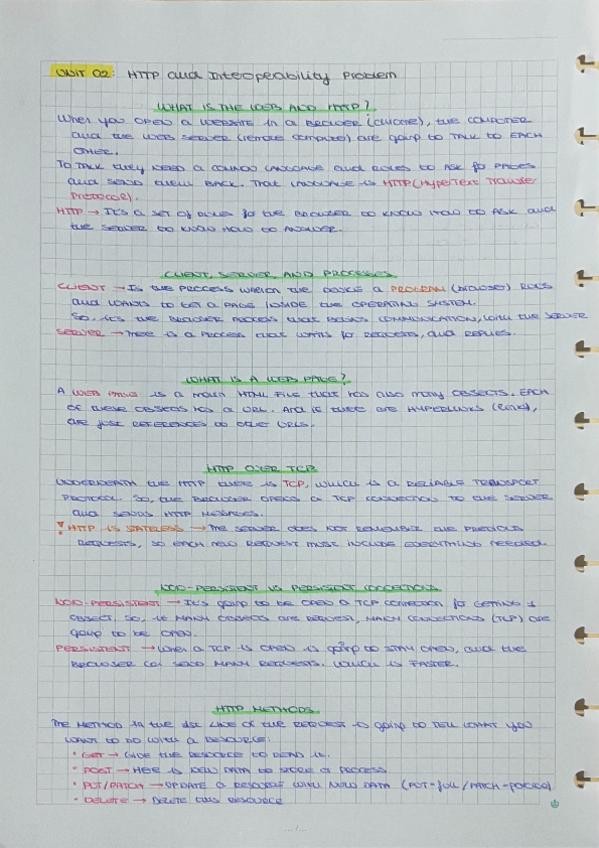 UNIT 02: HTTP and Interoperability Problem
WHAT IS THE WEB AND HTTP?
When you OPEN a WEBSITE in a BROWSER (CHROME), the COMPUTER
and the WEB SERVER (remote computer) are going to TALK TO EACH
OTHER.
To TALK they NEED a COMMON LANGUAGE and RULES to ASK for PAGES
and SEND them BACK. That LANGUAGE is HTTP (HyperText Transfer
Protocol).
HTTP → It's a SET OF RULES for the BROWSER to KNOW HOW to ASK and
the SERVER to KNOW HOW to ANSWER.
CLIENT, SERVER, AND PROCESSES
CLIENT → Is the PROCESS WHICH the DEVICE a PROGRAM (browser) RUNS
and WANTS to GET a PAGE INSIDE the OPERATING SYSTEM.
So, it's the BROWSER PROCESS that BEGINS COMMUNICATION, with the SERVER
SERVER → There is a PROCESS that WAITS for REQUESTS, and REPLIES.
WHAT IS A WEB PAGE?
A WEB PAGE is a main HTML FILE that has also many OBJECTS. EACH
OF these OBJECTS HAS a URL. And if there are HYPERLINKS (links),
are JUST REFERENCES to other URLS.
HTTP OVER TCP
UNDERNEATH the HTTP there is TCP, which is a RELIABLE TRANSPORT
PROTOCOL. So, the BROWSER OPENS a TCP CONNECTION to the SERVER
and SENDS HTTP MESSAGES.
HTTP IS STATELESS → The SERVER DOES NOT REMEMBER the PREVIOUS
REQUESTS, so EACH NEW REQUEST MUST INCLUDE EVERYTHING NEEDED.
NON-PERSISTENT VS PERSISTENT CONNECTIONS
NON-PERSISTENT → It's going to be OPEN a TCP CONNECTION for GETTING 1
OBJECT. So, if MANY OBJECTS are REQUEST, MANY CONNECTIONS (TCP) are
going to be OPEN.
PERSISTENT → When a TCP is OPEN is going to STAY OPEN, and the
BROWSER can SEND MANY REQUESTS. Which is FASTER.
HTTP METHODS
The METHOD in the 1st LINE OF the REQUEST is going to TELL WHAT YOU
WANT to DO WITH a RESOURCE:
• GET → GIVE the RESOURCE to READ it.
• POST → HERE is NEW DATA to STORE a PROCESS
• PUT/PATCH → UPDATE a RESOURCE WITH NEW DATA (PUT-full / PATCH-
• DELETE → DELETE this RESOURCE
.../...